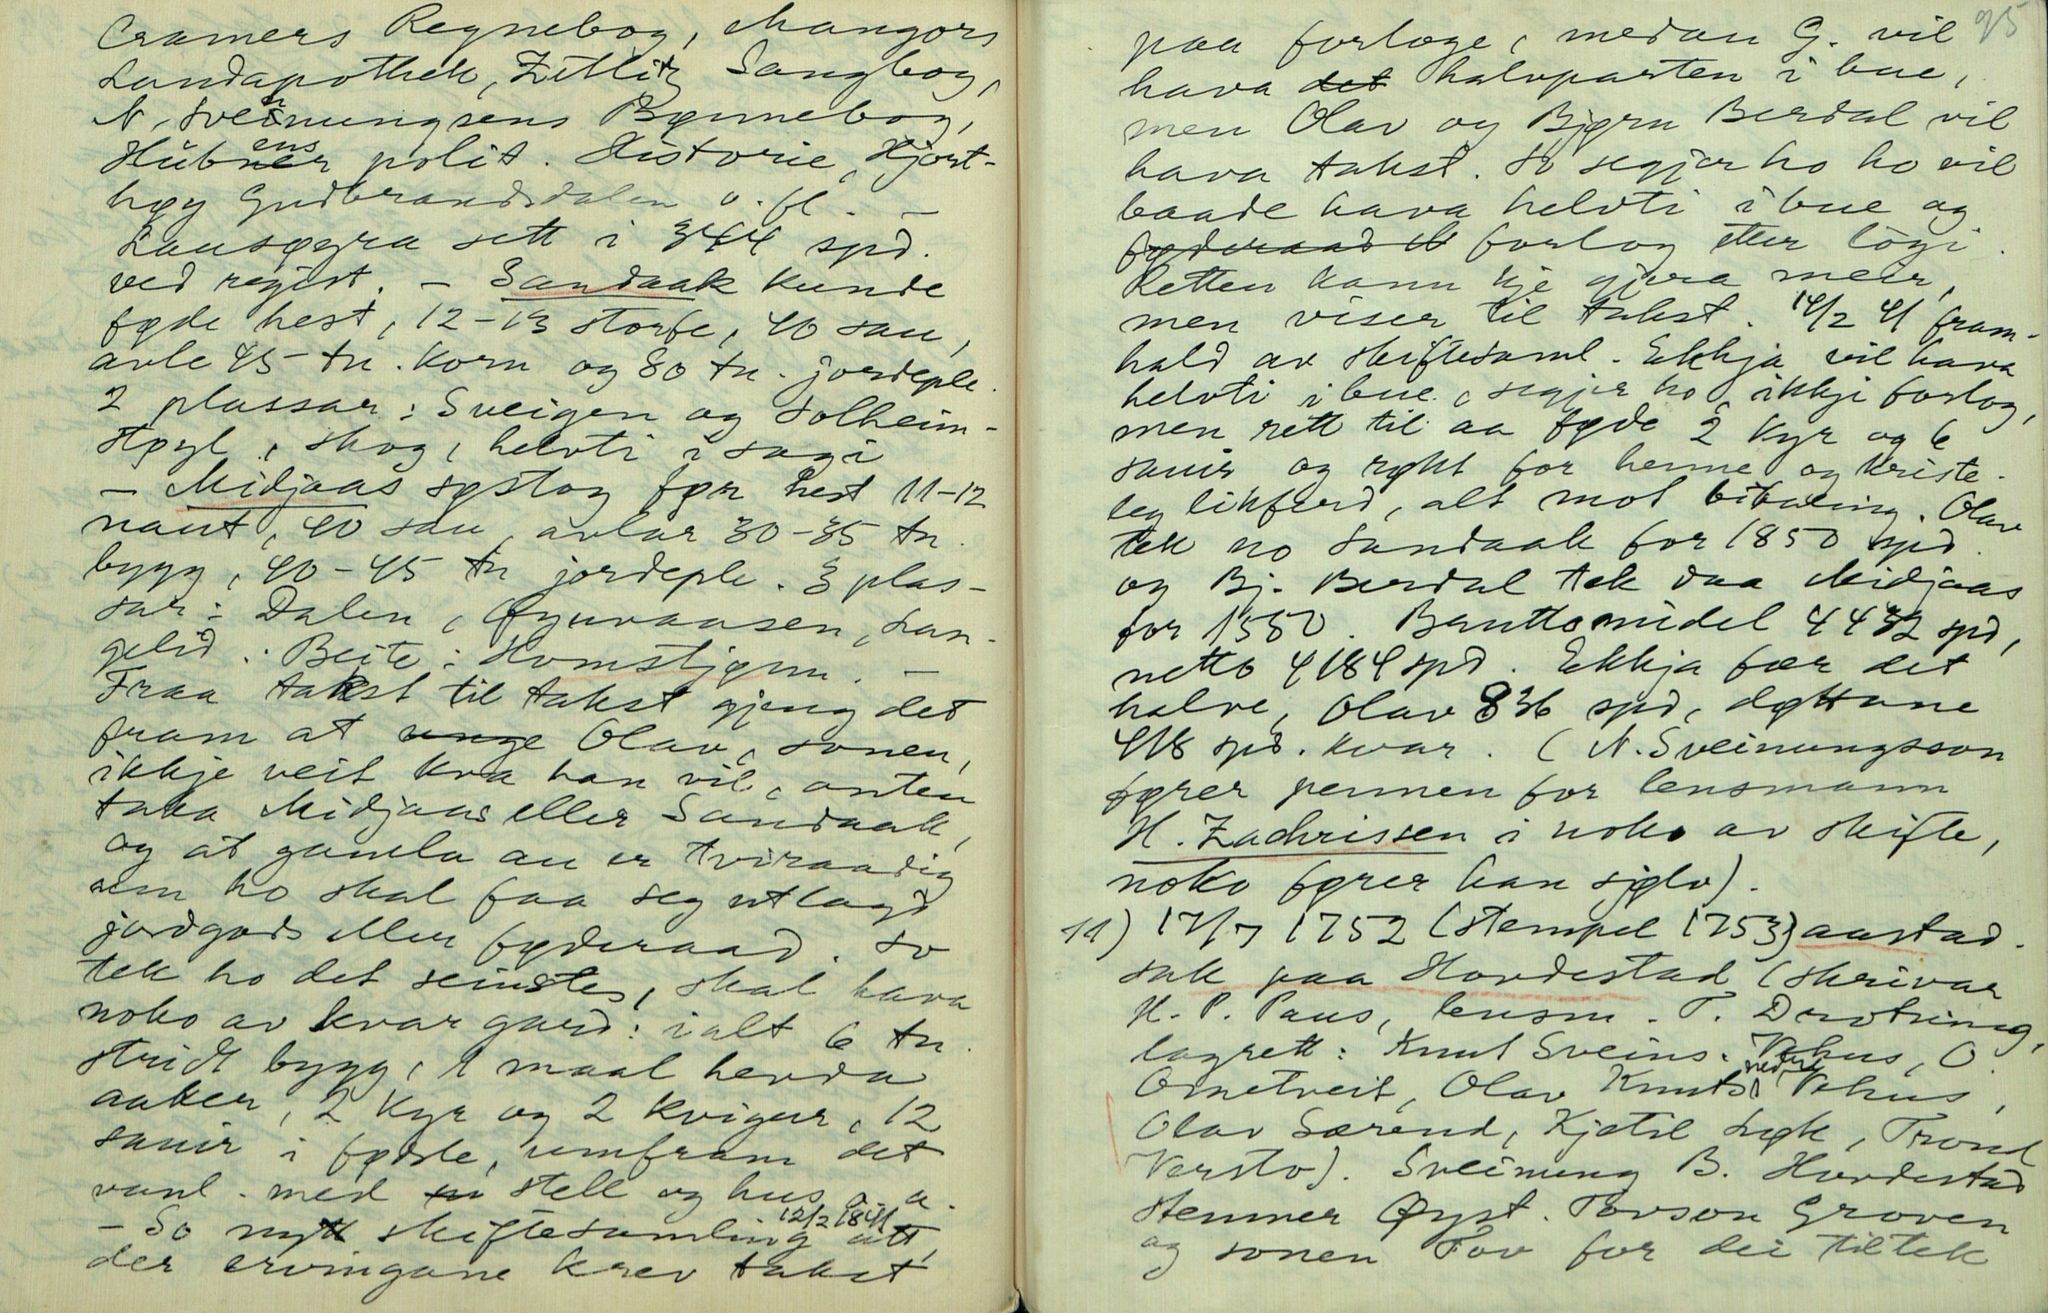 Cramers Regnebog, Mangors
Landapothek, Zetlitz Sangbog,
N. Sveinungsens Bønnebog,
Hübnens polit. Historie, Hjort-
høy Gudbrandsdalen o. fl. —
Lausøyra sett i 344 spd.
ved regist. — Sandaak kunde
føde hest, 12-13 storfe, 40 sau,
avle 45 tn. korn og 80 tn. jordeple.
2 plassar: Sveigen og Solheim-
støyl, skog, helvti i sagi
— Midjaas søstog før hest 11-12
naut, 40 sau, avlar 30-35 tn.
bygg, 40-45 tn jordeple. 3 plas-
sar: Dalen, Øynvaasen, Lan-
gelid. Beite: Homstjønn. —
Fraa takst til takst gjeng det
fram at unge Olav, sonen,
ikkje veit kva han vil, anten
taka Midjaas eller Sandaak,
og at gamla au er tviraadig
um ho skal faa seg utlagd
jordgods eller føderaad. So
tek ho det seinste, skal hava
noko av kvar gard: ialt 6 tn.
stridt bygg, 1 maal hevda
aaker, 2 kyr og 2 kvigur, 12
sauir i fødsle, umfram det
vanl. med stell og hus o. a.
12/2 1841
— So nytt skiftesamling att,
der ervingane krev takst
95
paa forloge, medan G. vil
hava det halvparten i bue,
men Olav og Bjørn Berdal vil
hava takst. So segjer ho ho vil
baade hava helvti i bue og
føderaad el forlog etter lògi.
Retten kann kje gjera meir,
men viser til takst. 14/2 41 fram-
hald av skiftesaml. Ekkja vil hava
helvti i bue, segjer ho, ikkje forlog,
men rett til aa føde 2 kyr og 6
sauir og røkt for henne og kriste-
leg likferd, alt mot bitaling. Olav
tek no Sandaak for 1850 spd.
og Bj. Berdal tek daa Midjaas
for 1550. Bruttomidel 4432 spd,
netto 4184 spd. Ekkja fær det
halve, Olav 836 spd, døttane
418 spd. kvar. (N. Sveinungsson
fører pennen for lensmann
H. Zachrissen i noko av skifte,
noko fører han sjølv).
11) 17/7 1752 (stempel 1753) aastad-
sak paa Hovdestad (skrivar
H. P. Paus, lensm. T. Drotning,
lagrett: Knut Sveins. Vehus, O.
Ornetveit, Olav Knuts. nedre Vehus,
Olav Særend, Kjetil Løk, Trond
Versto). Sveinung B. Hovdestad
stemner Øyst. Tovson Groven
og sonen Tov for dei tiltek